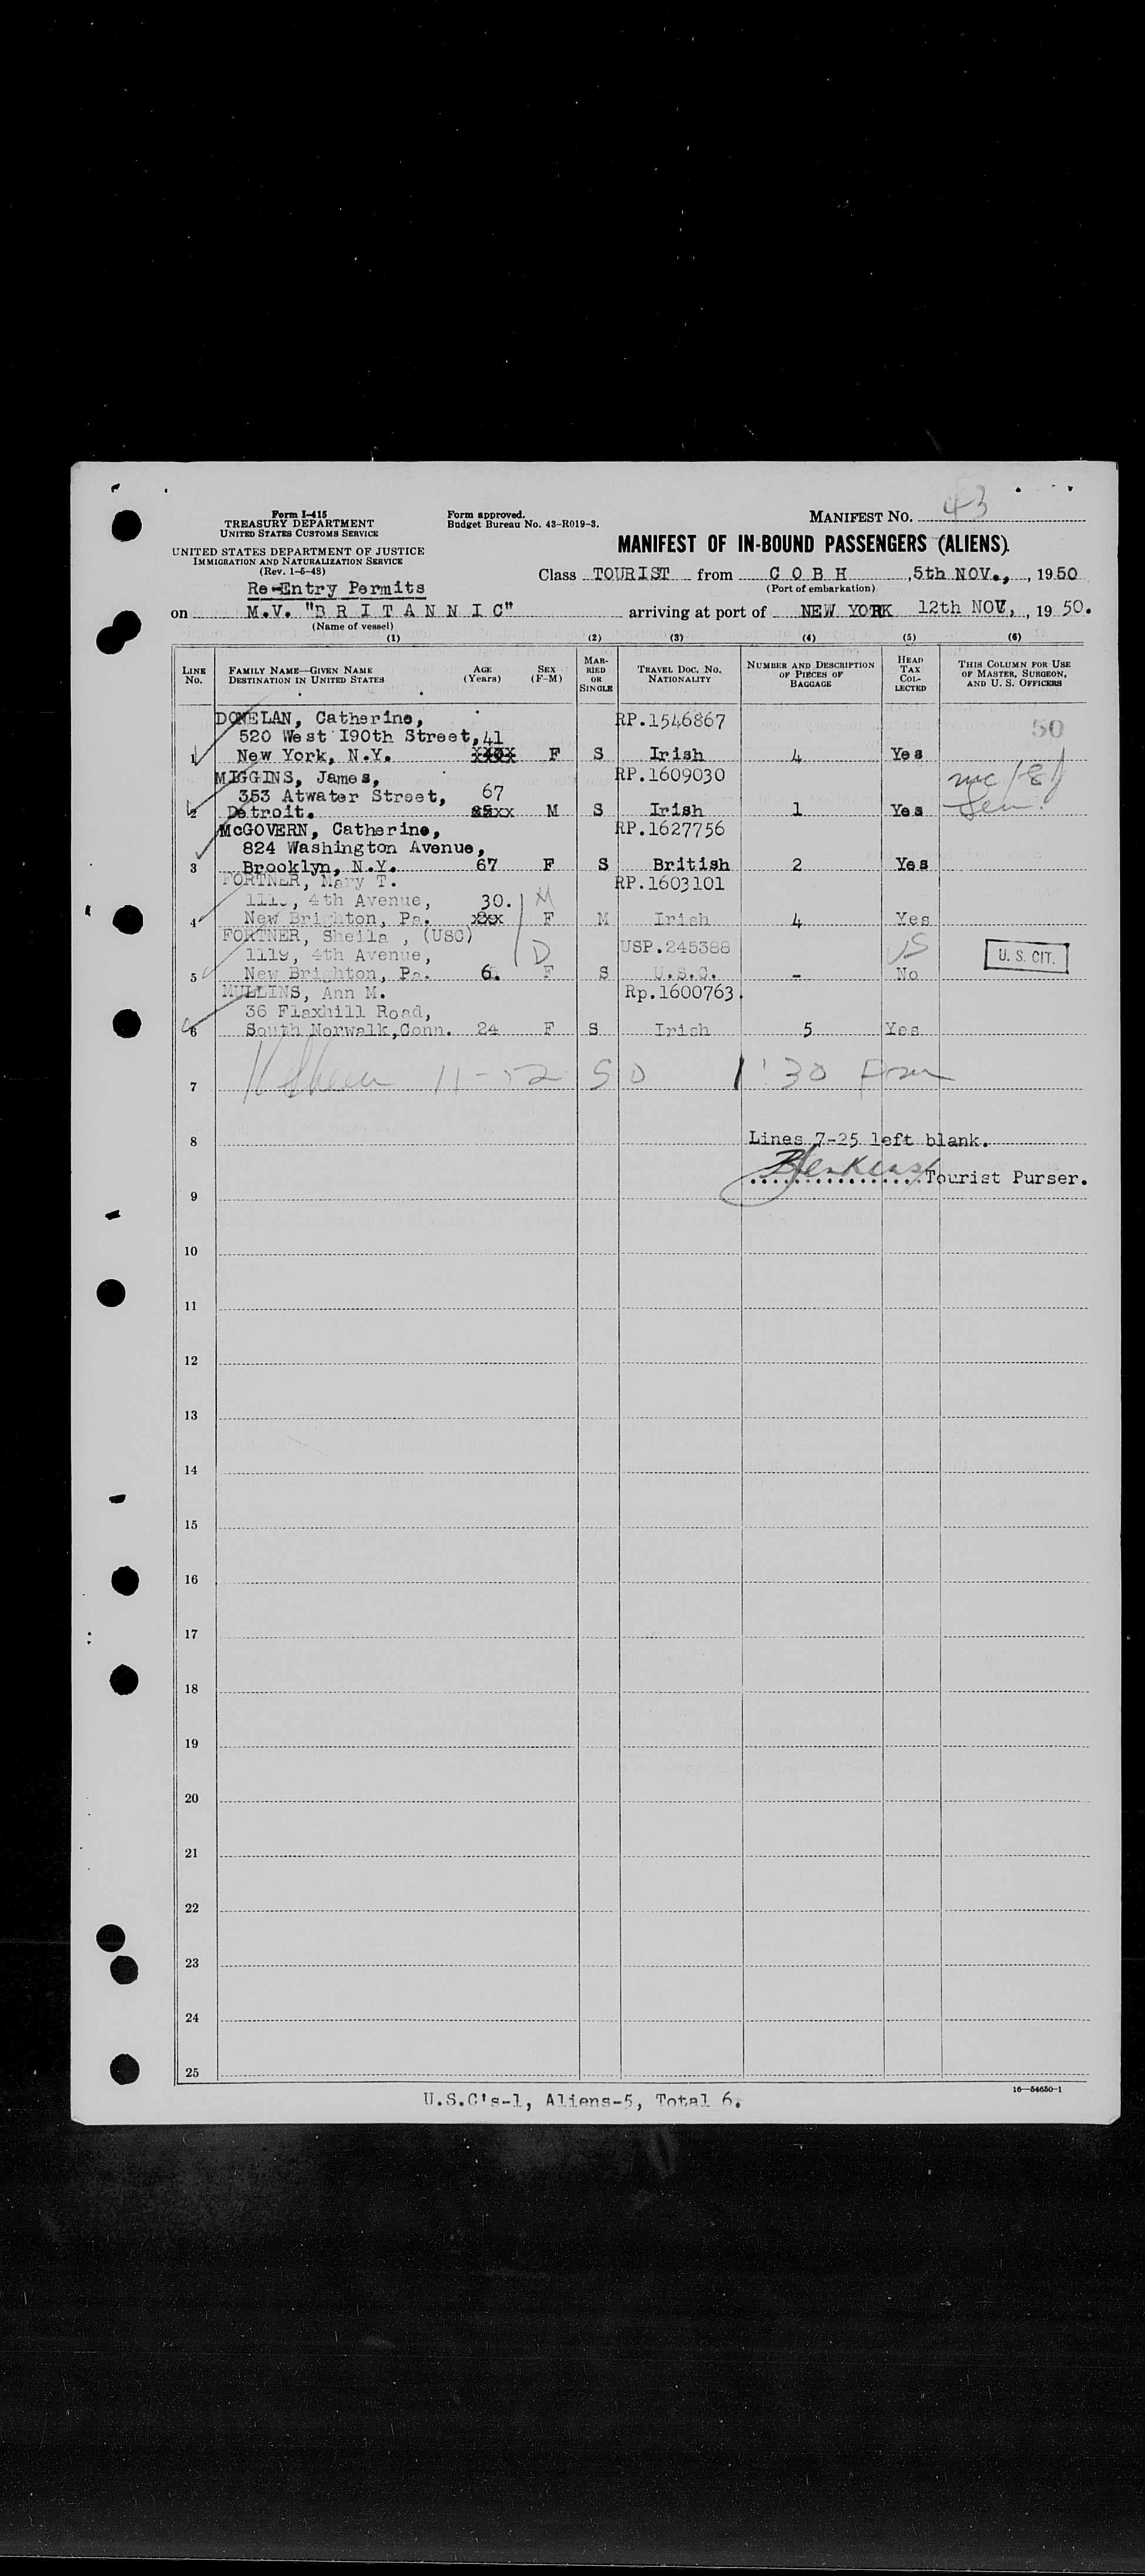 Form I-415
TREASURY DEPARTMENT
UNITED STATES CUSTOMS SERVICE
UNITED STATES DEPARTMENT OF JUSTICE
IMMIGRATION AND NATURALIZATION SERVICE
(Rev. 1-5-48)
Form approved.
Budget Bureau No. 43-R019-3.
MANIFEST NO. 43
MANIFEST OF IN-BOUND PASSENGERS (ALIENS)
Re-Entry Permits
Class TOURIST from C O B H , 5th NOV., , 1950
(Port of embarkation)
on M.V. "B R I T A N N I C" arriving at port of NEW YORK 12th NOV, , 19 50.
(Name of vessel)
(1) (2) (3) (4) (5) (6)
LINE NO. FAMILY NAME—GIVEN NAME DESTINATION IN UNITED STATES AGE (Years) SEX (F-M) MARRIED OR SINGLE TRAVEL DOC. NO. NATIONALITY NUMBER AND DESCRIPTION OF PIECES OF BAGGAGE HEAD TAX COLLECTED THIS COLUMN FOR USE OF MASTER, SURGEON, AND U. S. OFFICERS
DONELAN, Catherine, RP.1546867
520 West I90th Street, 41 50
1 New York, N.Y. F S Irish 4 Yes
MIGGINS, James, RP.1609030
353 Atwater Street, 67
2 Detroit. M S Irish 1 Yes
McGOVERN, Catherine, RP.1627756
824 Washington Avenue,
3 Brooklyn, N.Y. 67 F S British 2 Yes
FORTNER, Mary T. RP.1603101
4th Avenue, 30. M
4 New Brighton, Pa. xxx F M Irish 4 Yes
FORTNER, Sheila , (USC)
1119, 4th Avenue, D USP.245388 US U. S. CIT.
5 New Brighton, Pa. 6. F S U.S.C. - No
MULLINS, Ann M. Rp.1600763.
36 Flaxhill Road,
6 South Norwalk, Conn. 24 F S Irish 5 Yes
7 11-12 50 1:30
8 Lines 7-25 left blank.
Tourist Purser.
9
10
11
12
13
14
15
16
17
18
19
20
21
22
23
24
25
16—54650-1
U.S.C's-1, Aliens-5, Total 6.